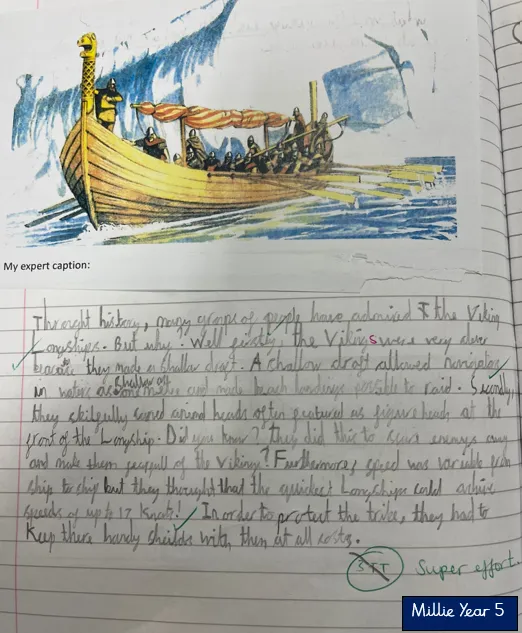 My expert caption:
Throught history, many groups of people have admired the Viking
Longships. But why? Well firstly, the Vikings were very clever
because they made a shallow draft. A shallow draft allowed navigation
in waters as shallow as one metre and made beach landings possible to raid. Secondly,
they skilfully carved animal heads often featured as figure heads at the
front of the Longship. Did you know? They did this to scare enemys away
and make them fearfull of the Vikings! Furthermore, speed was variable from
ship to ship but they thought that the quickest Longships could achive
speeds of up to 17 knots! In order to protect the tribe, they had to
Keep there handy shields with them at all costs.
STT Super effort.
Millie Year 5